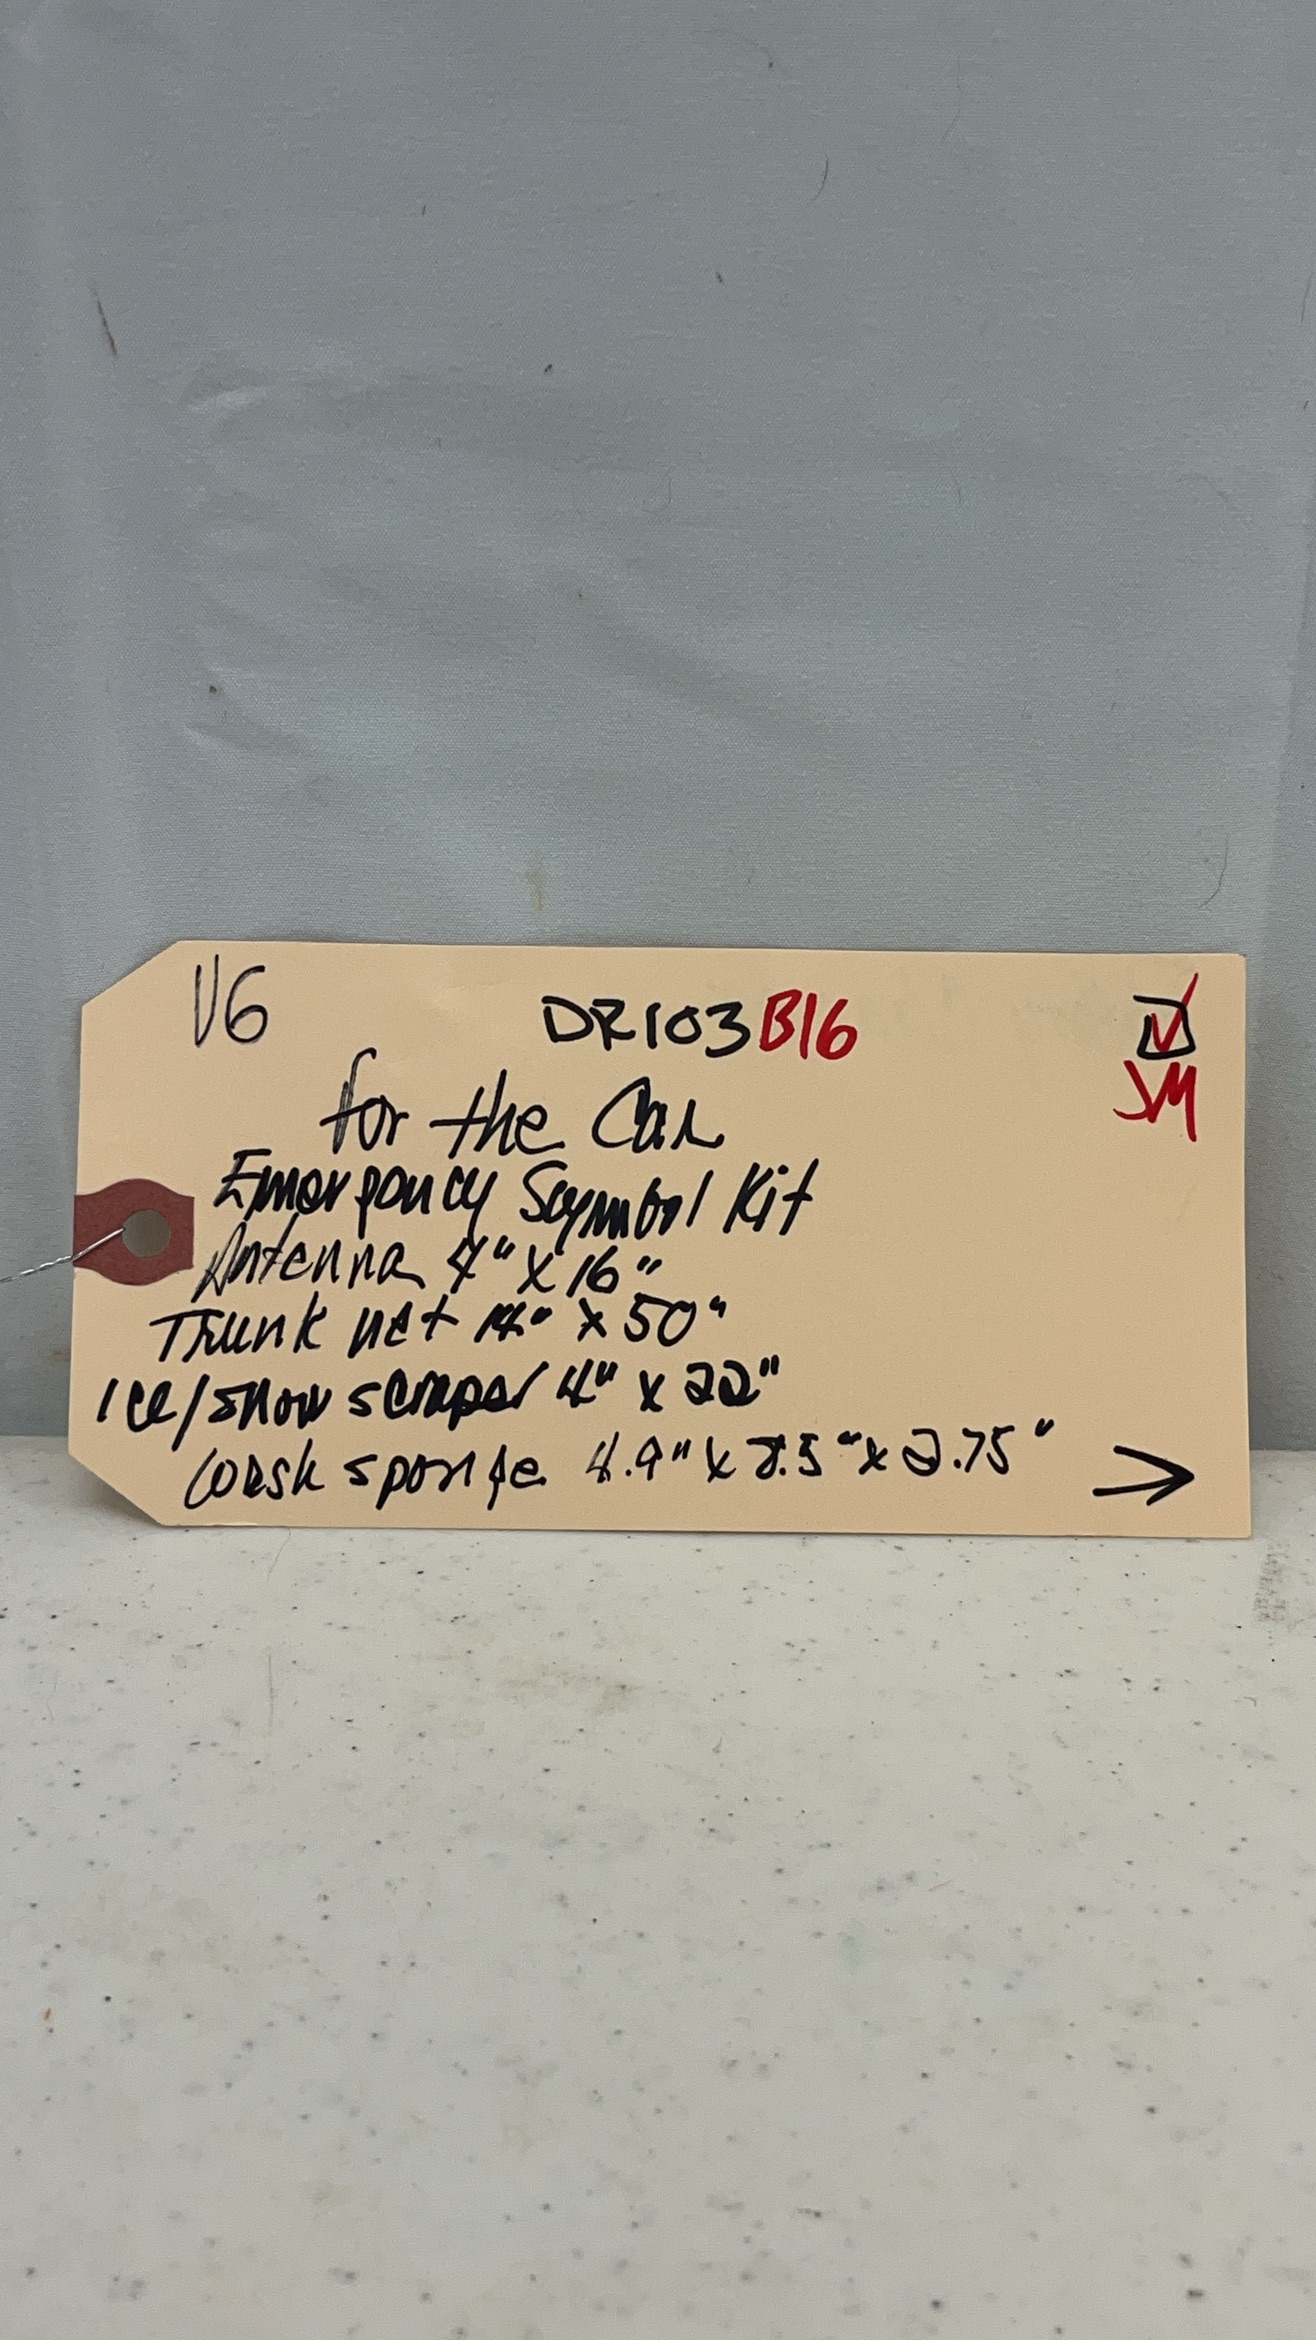 V6
DR103B16
JM
for the Car
Emergency Symbol Kit
Antenna 4" X 16"
Trunk net " X 50"
Ice/snow scraper 4" x 22"
Wash sponge 4.9" x 8.5" x 2.75" →